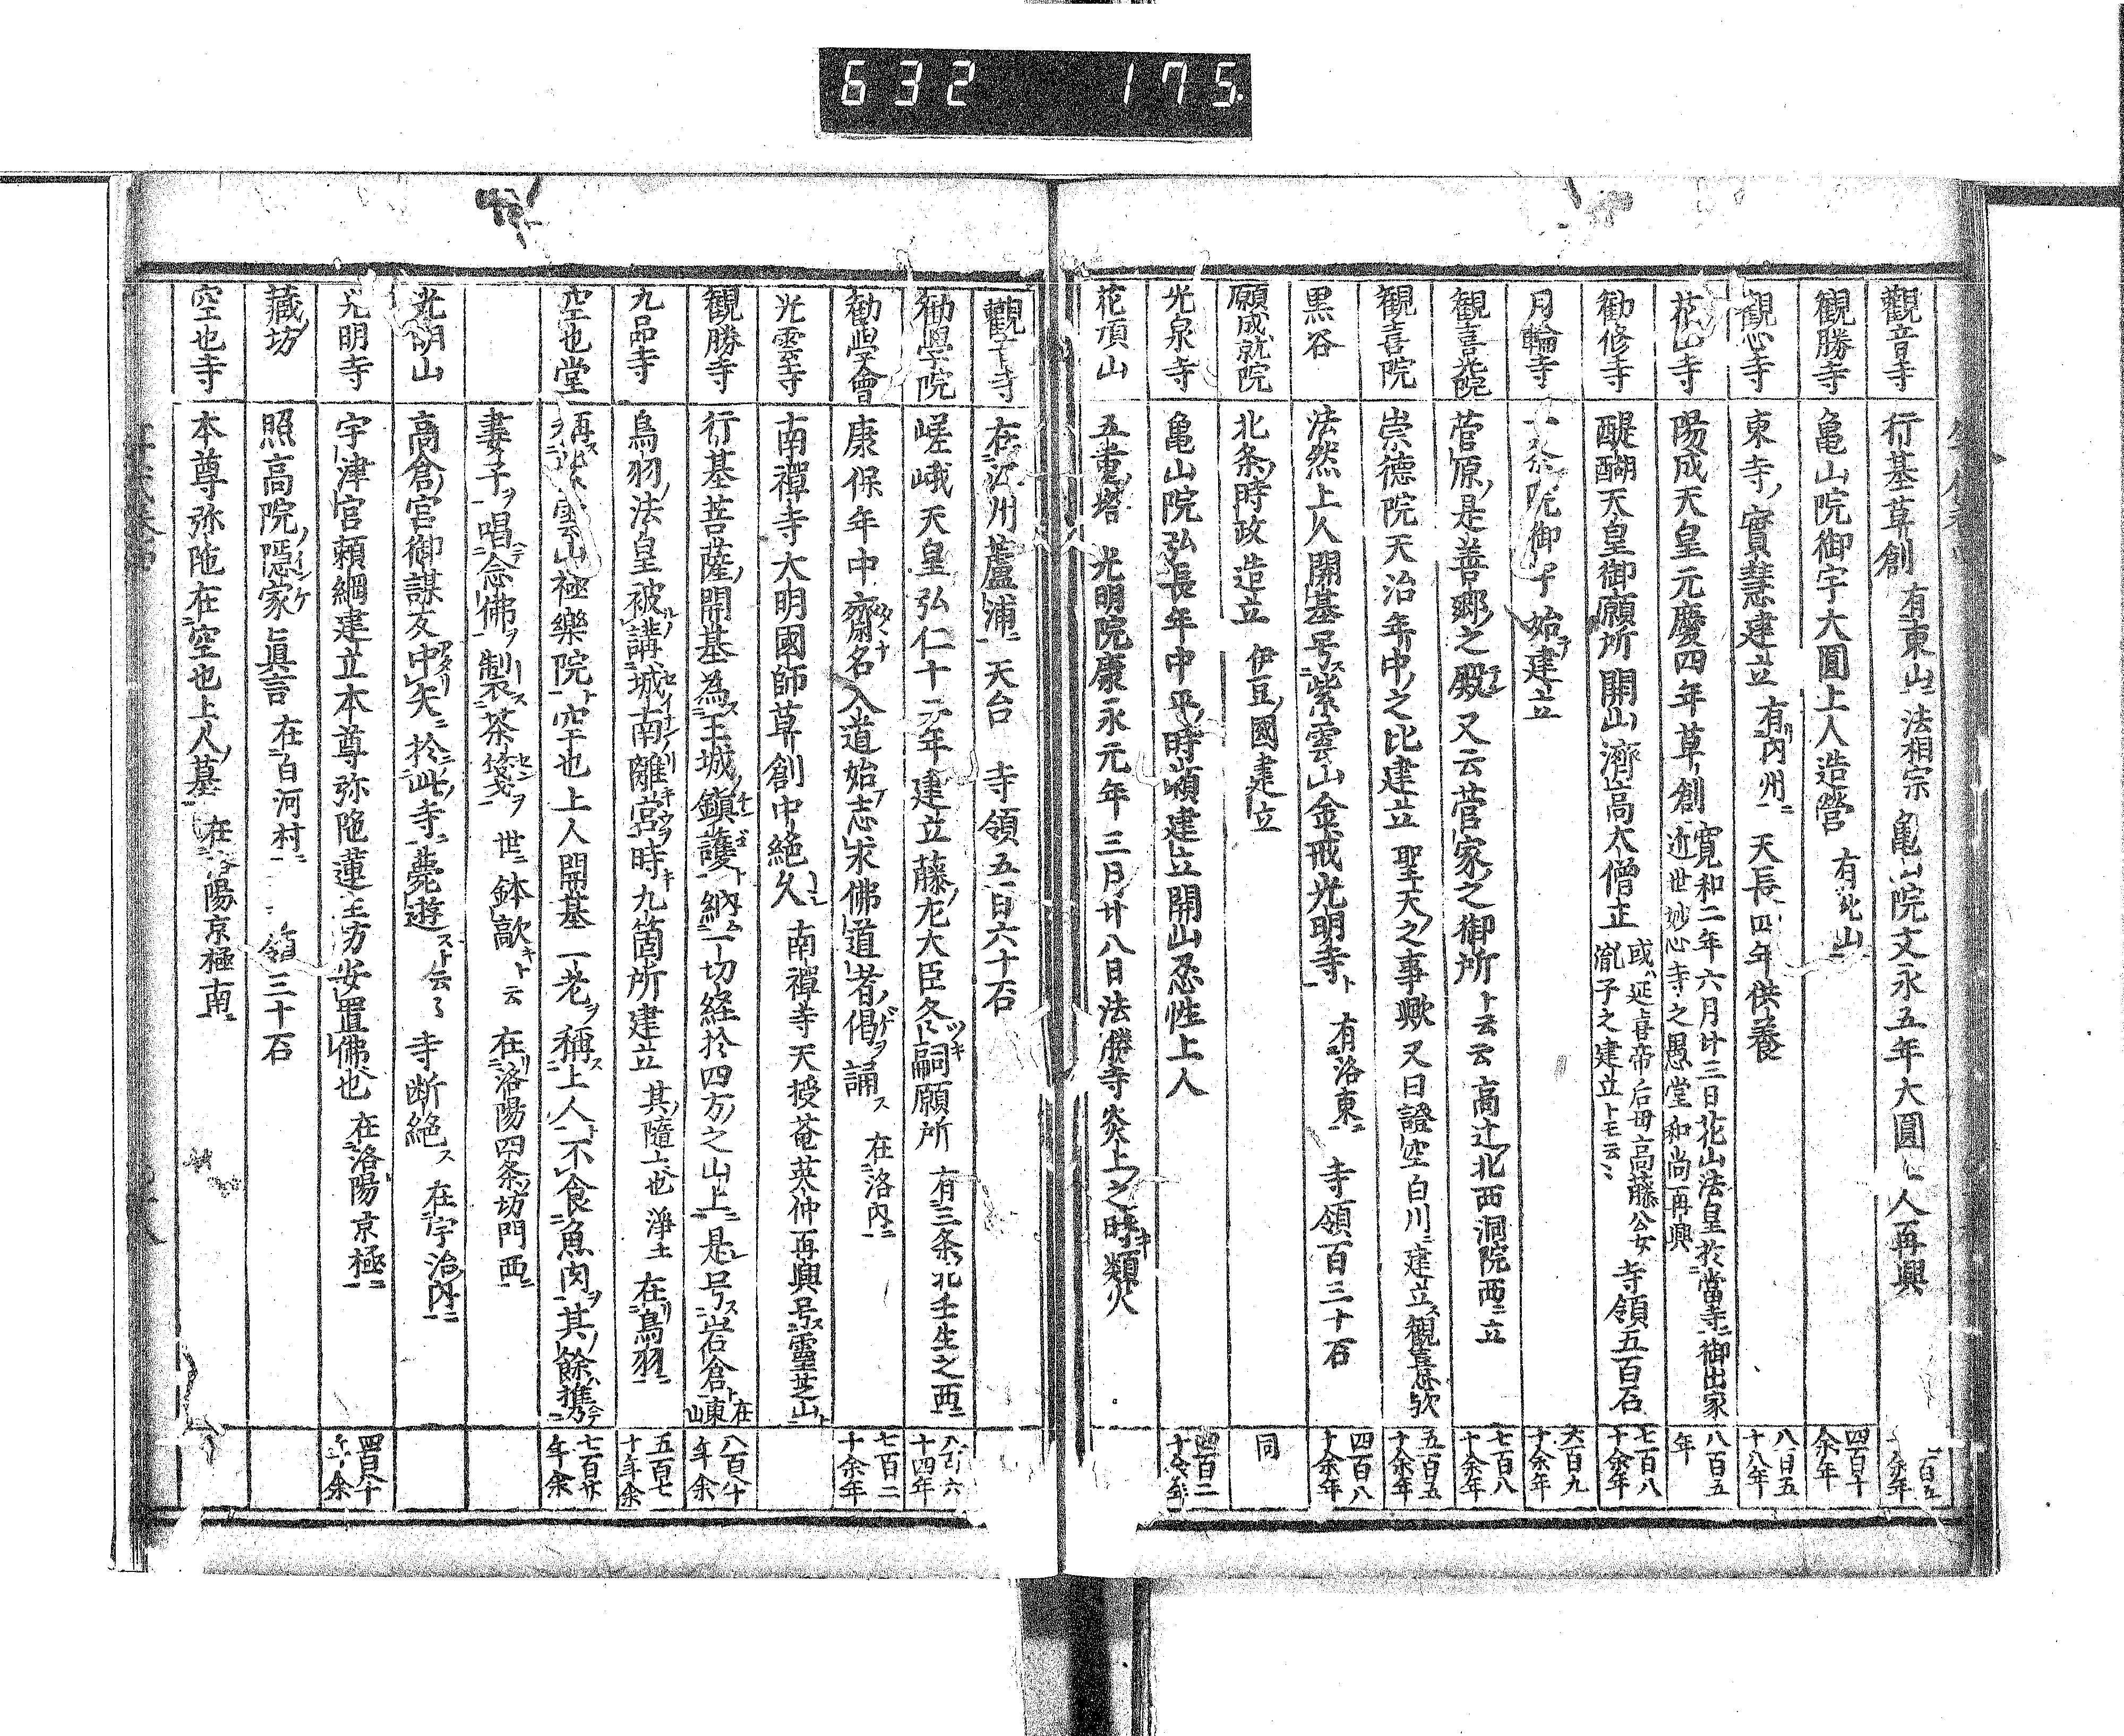 632 175.
觀音寺 行基草創 有東山ニ 法相宗 亀山院文永五年大圓上人再興
觀勝寺 亀山院御宇大圓上人造營 有北山ニ 四百十余年
觀心寺 東寺ノ實慧建立 有河内州ニ 天長四年供養 八百五十八年
花山寺 陽成天皇元慶四年草創 寛和二年六月廿三日花山法皇於當寺御出家 近世妙心寺之愚堂和尚再興 八百五年
勧修寺 醍醐天皇御願所 開山濟高大僧正 或ハ延喜帝后母高藤公女 胤子之建立トモ云云 寺領五百石 七百八十余年
月輪寺 一条院御子始テ建立 六百九十余年
観喜光院 菅原ノ是善郷之殿 又云菅家之御所ト云云 高辻ノ北西洞院西ニ立 七百八十余年
観喜院 崇徳院天治年中之比建立 聖天之事歟 又曰證空白川ニ建立ス観喜歟 五百五十余年
黒谷 法然上人開基号ス紫雲山金戒光明寺ト 有洛東ニ 寺領百三十石 四百八十余年
願成就院 北条時政造立 伊豆ノ國建立 同
光泉寺 亀山院弘長年中平時頼建立開山忍性上人 四百二十余年
花頂山 五重ノ塔 光明院康永元年三月廿八日法勝寺炎上之時類火
觀音寺 在江州蘆浦ニ 天台 寺領五百六十石
勧學院 嵯峨天皇弘仁十二年建立藤左大臣冬嗣願所 有三条北壬生之西ニ 八百六十四年
勧學會 康保年中齋名入道始テ志求佛道者ノ偈ヲ誦ス 在洛内ニ 七百二十余年
光雲寺 南禪寺大明國師草創中絶久 南禪寺天授菴英仲再興号ス靈芝山ト
觀勝寺 行基菩薩ノ開基為ス王城ノ鎮護ト納ム一切経於四方之山上ニ是号ス岩倉ト 在東山 八百八十年余
九品寺 鳥羽ノ法皇被講城南離宮ヲ時九箇所建立 其ノ隨上也 淨土 在鳥羽ニ 五百七十年余
空也堂 稱ス紫雲山極樂院ト空也上人開基 一老ヲ稱ス上人ト不食魚肉ヲ其ノ餘ハ携テ 七百廿年余
妻子ヲ唱念佛ヲ製ス茶筌ヲ 世ニ鉢敲キト云 在洛陽四条坊門西ニ
光明山 高倉ノ宮御謀反中矢ニ於此寺ニ薨遊スト云々 寺断絶ス 在宇治内ニ
光明寺 宇津宮頼綱建立本尊弥陁蓮生方安置佛也 在洛陽京極ニ 四百八十年余
藏坊 照高院ノ隱家 眞言 在白河村ニ 領三十石
空也寺 本尊弥陁在空也上人ノ墓 在洛陽京極南ニ